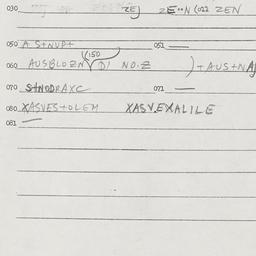 030 ZEJ ZE··N (022 ZEN
050 A STNUPT 051 —
060 AUSBLOZN V(150 DI NO.Z ) + AUS+NA
070 STNODRAXC 071 —
080 XASVES+OLEM XASVEXALILE
081 —